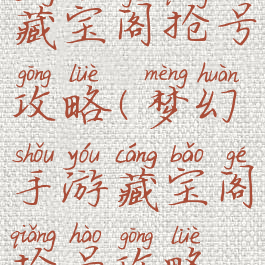 藏宝阁抢号
gōng lüè mèng huàn
攻略(梦幻
shǒu yóu cáng bǎo gé
手游藏宝阁
qiǎng hào gōng lüè
抢号攻略